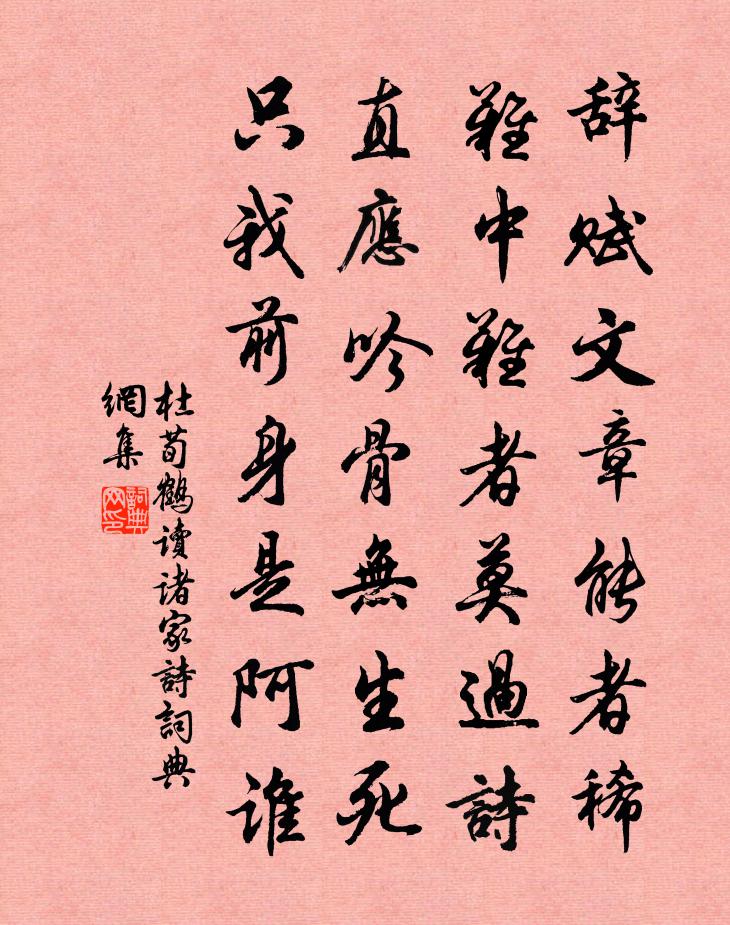 辞赋文章能者稀
難中難者莫過詩
直應吟骨無生死
只我前身是阿誰
杜荀鶴讀诸家詩詞典
網集
詞典
网印